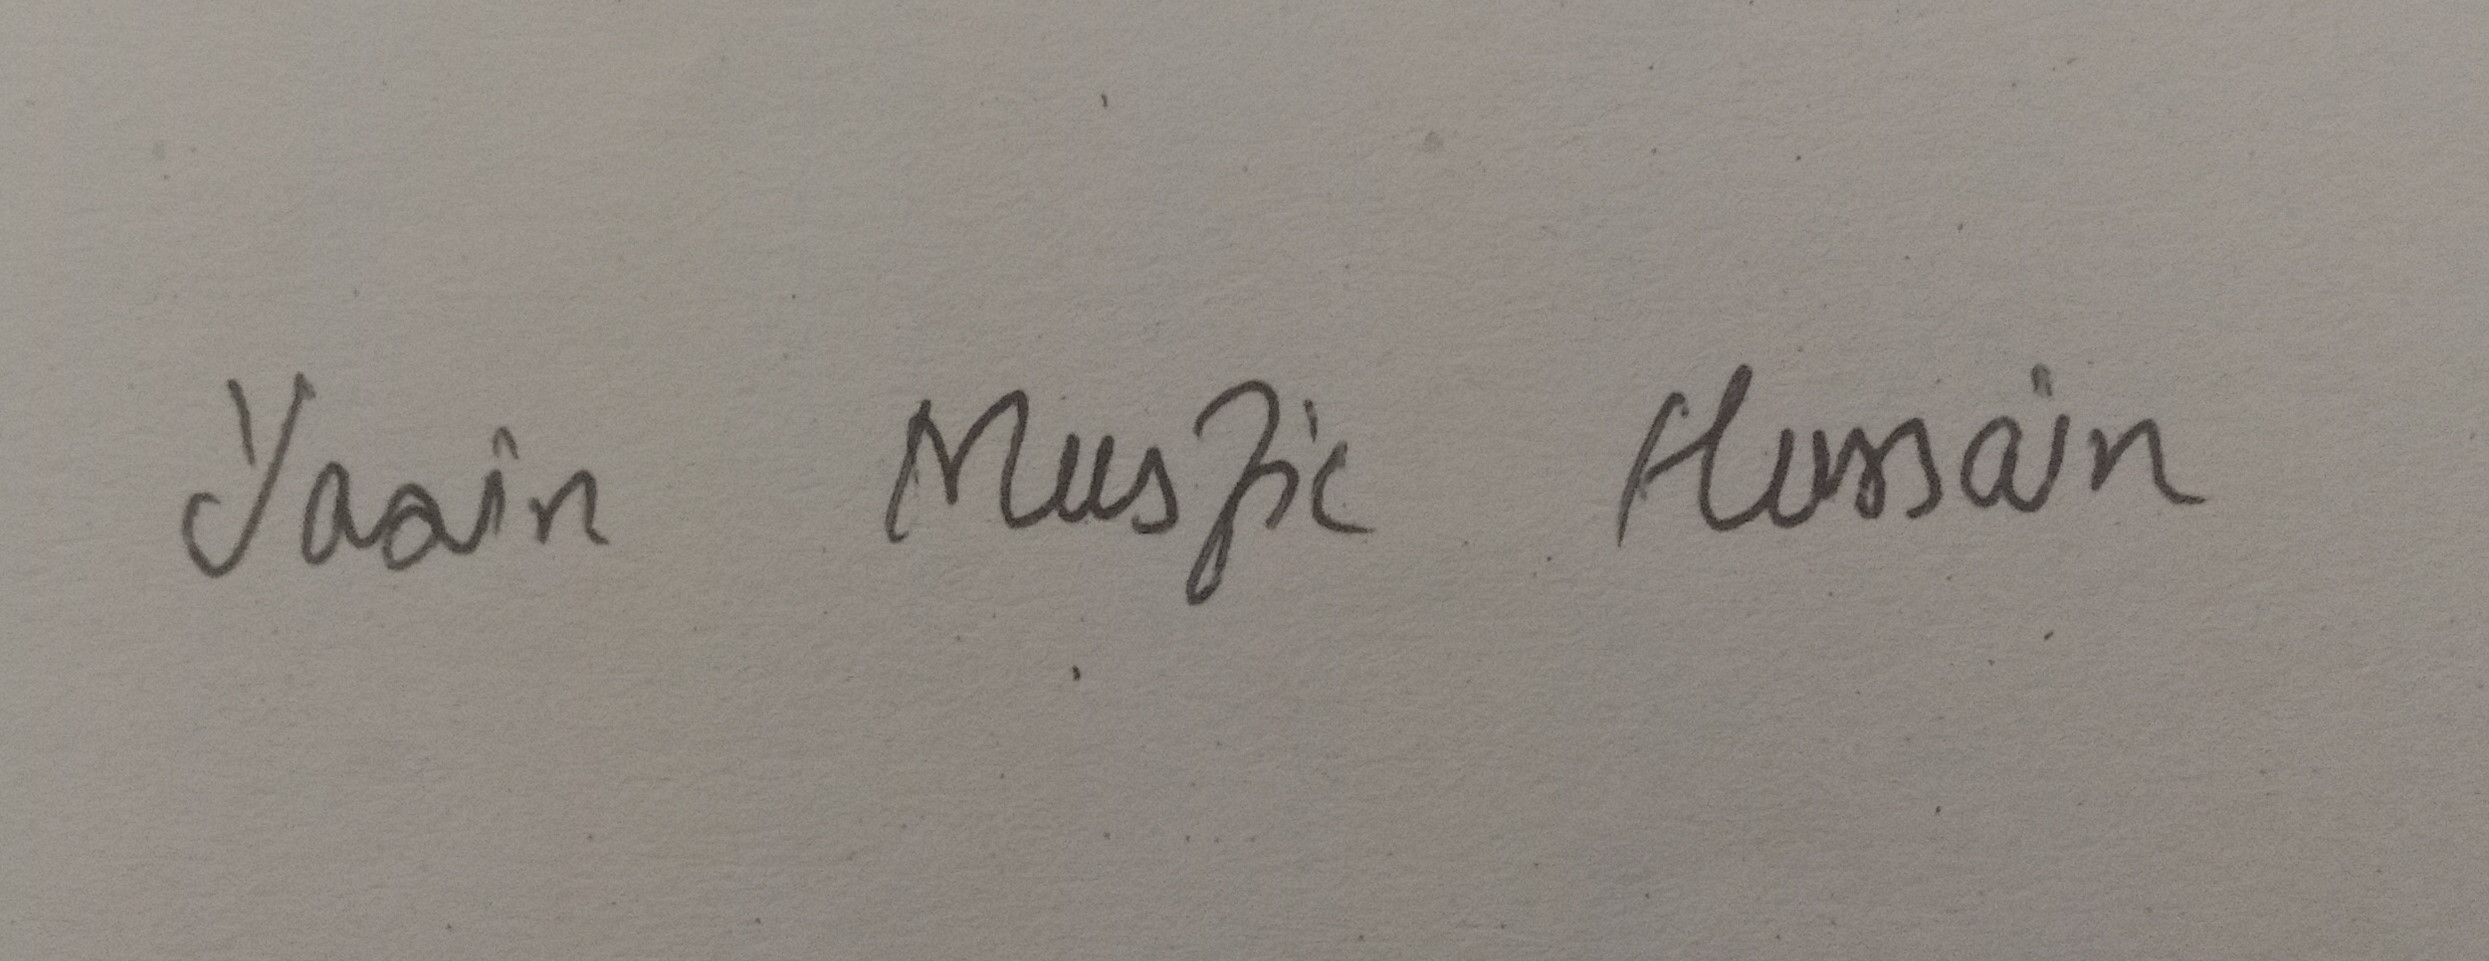 Yaain Musfic Hussain